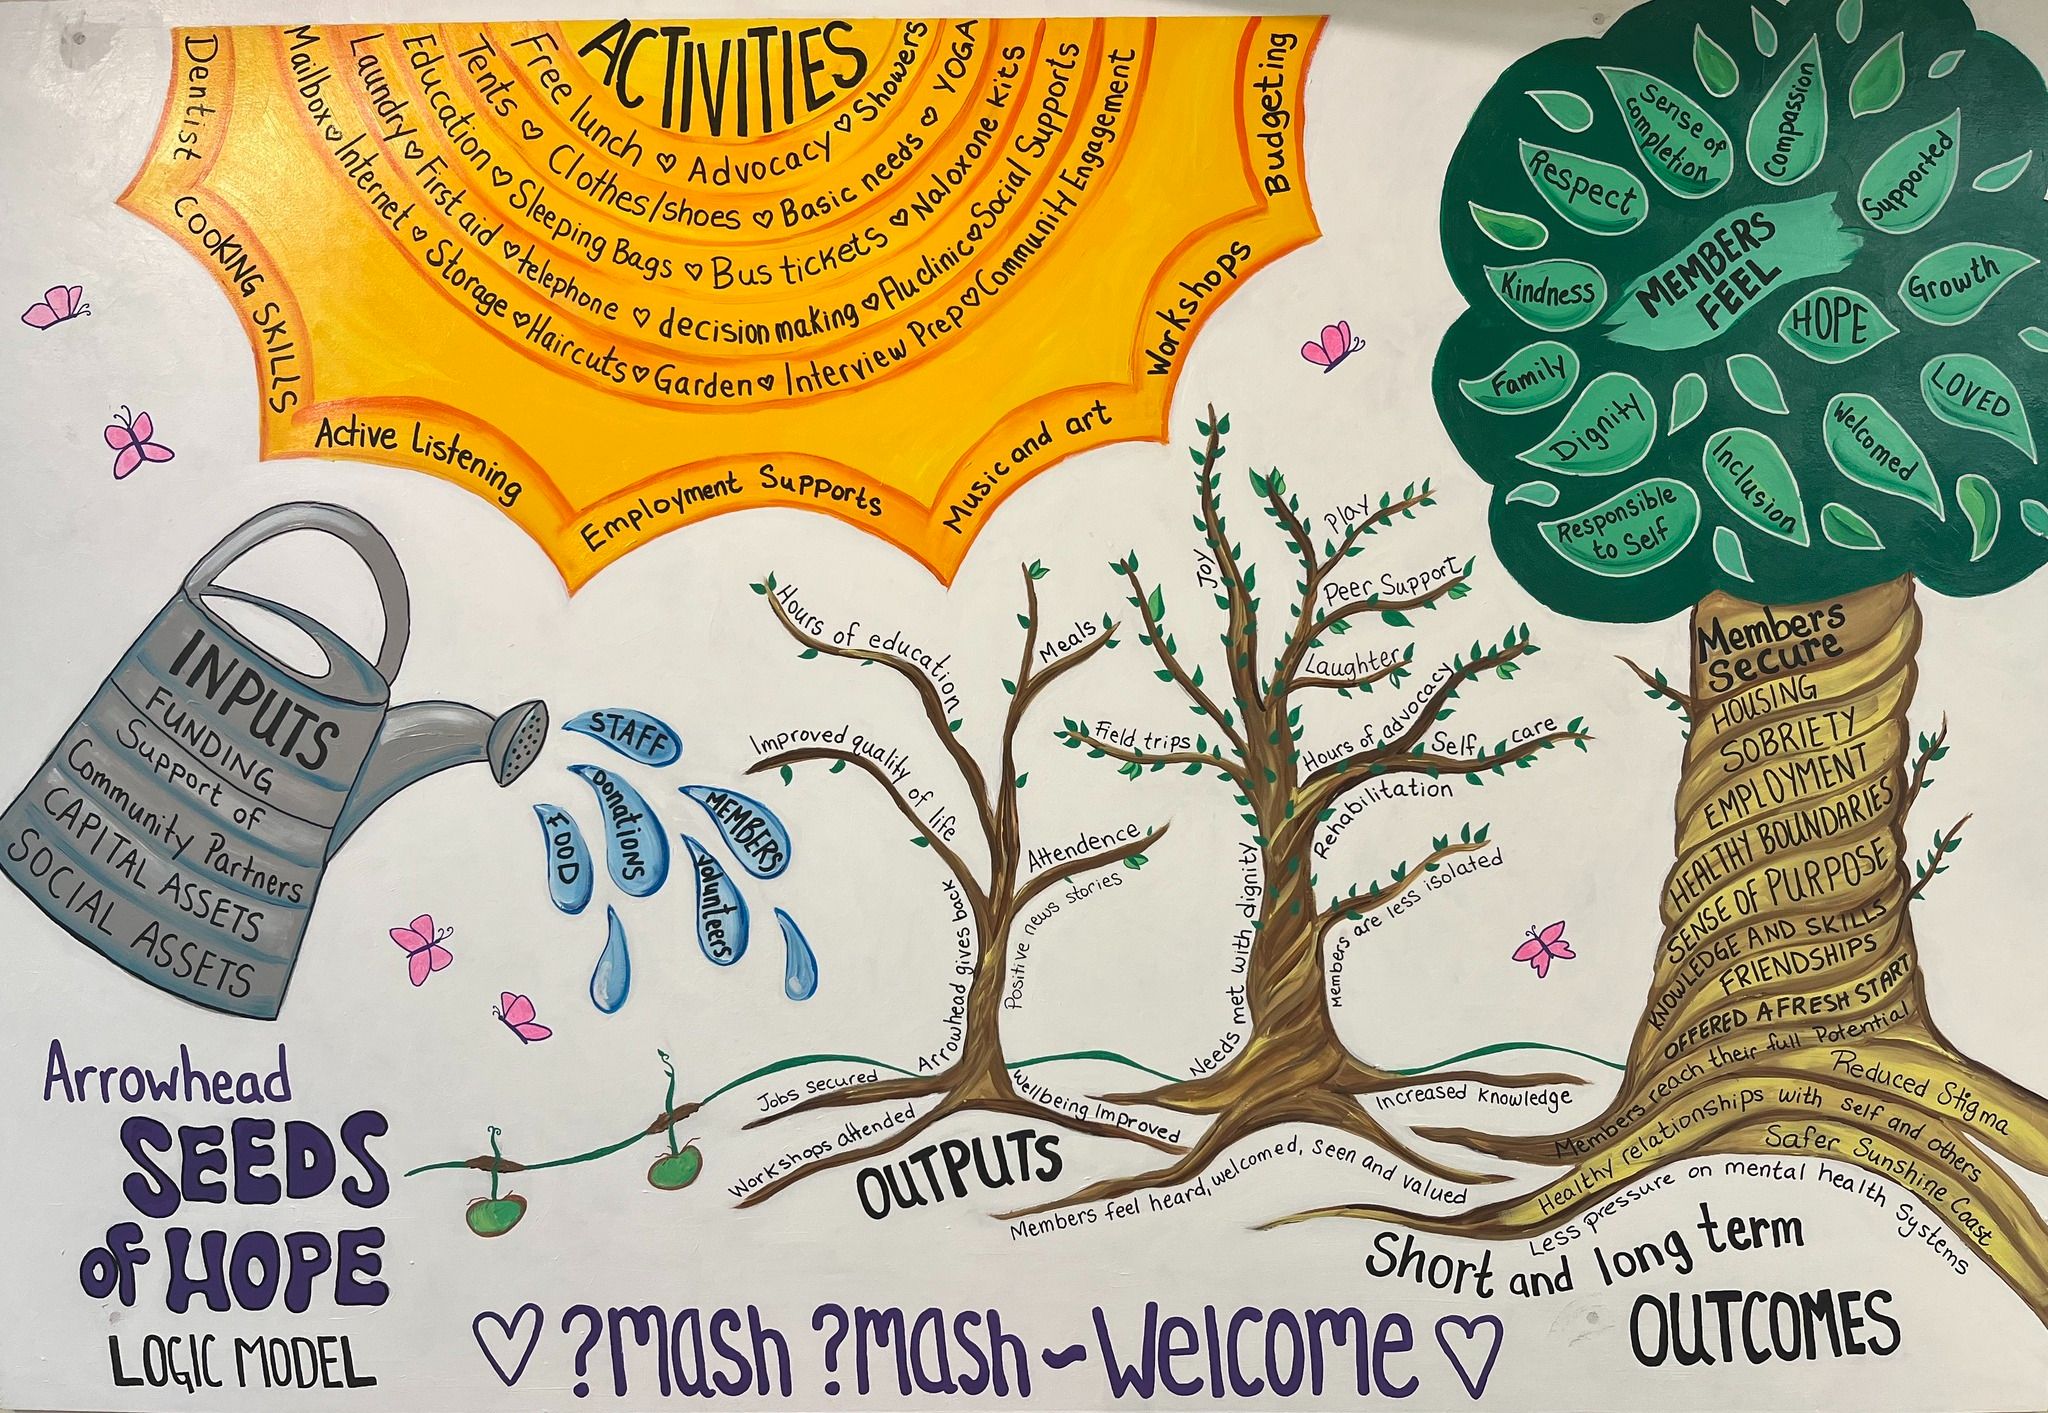 ACTIVITIES
Free lunch ♡ Advocacy ♡ Showers
Tents ♡ Clothes/shoes ♡ Basic needs ♡ YOGA
Education ♡ Sleeping Bags ♡ Bus tickets ♡ Naloxone kits
Laundry ♡ First aid ♡ telephone ♡ decision making ♡ Flu clinic ♡ Social Supports
Mailbox ♡ Internet ♡ Storage ♡ Haircuts ♡ Garden ♡ Interview Prep ♡ Community Engagement
Dentist
COOKING SKILLS
Active Listening
Employment Supports
Music and art
Workshops
Budgeting
MEMBERS
FEEL
Sense of
completion
Compassion
Supported
Respect
Kindness
HOPE
Growth
Family
Dignity
LOVED
Welcomed
Inclusion
Responsible
to Self
INPUTS
FUNDING
Support of
Community Partners
CAPITAL ASSETS
SOCIAL ASSETS
STAFF
Donations
MEMBERS
FOOD
Volunteers
Hours of education
Meals
Improved quality of life
Attendence
Positive news stories
Arrowhead gives back
Jobs secured
Workshops attended
Wellbeing Improved
OUTPUTS
Joy
Play
Peer Support
Laughter
Field trips
Hours of advocacy
Self care
Rehabilitation
Needs met with dignity
Members are less isolated
Increased Knowledge
Members feel heard, welcomed, seen and valued
Members
secure
HOUSING
SOBRIETY
EMPLOYMENT
HEALTHY BOUNDARIES
SENSE OF PURPOSE
KNOWLEDGE AND SKILLS
FRIENDSHIPS
OFFERED A FRESH START
Members reach their full Potential
Reduced Stigma
Healthy relationships with self and others
Safer Sunshine Coast
Less pressure on mental health Systems
Short and long term
OUTCOMES
Arrowhead
SEEDS
of HOPE
LOGIC MODEL
♡ ?mash ?mash ~ Welcome ♡